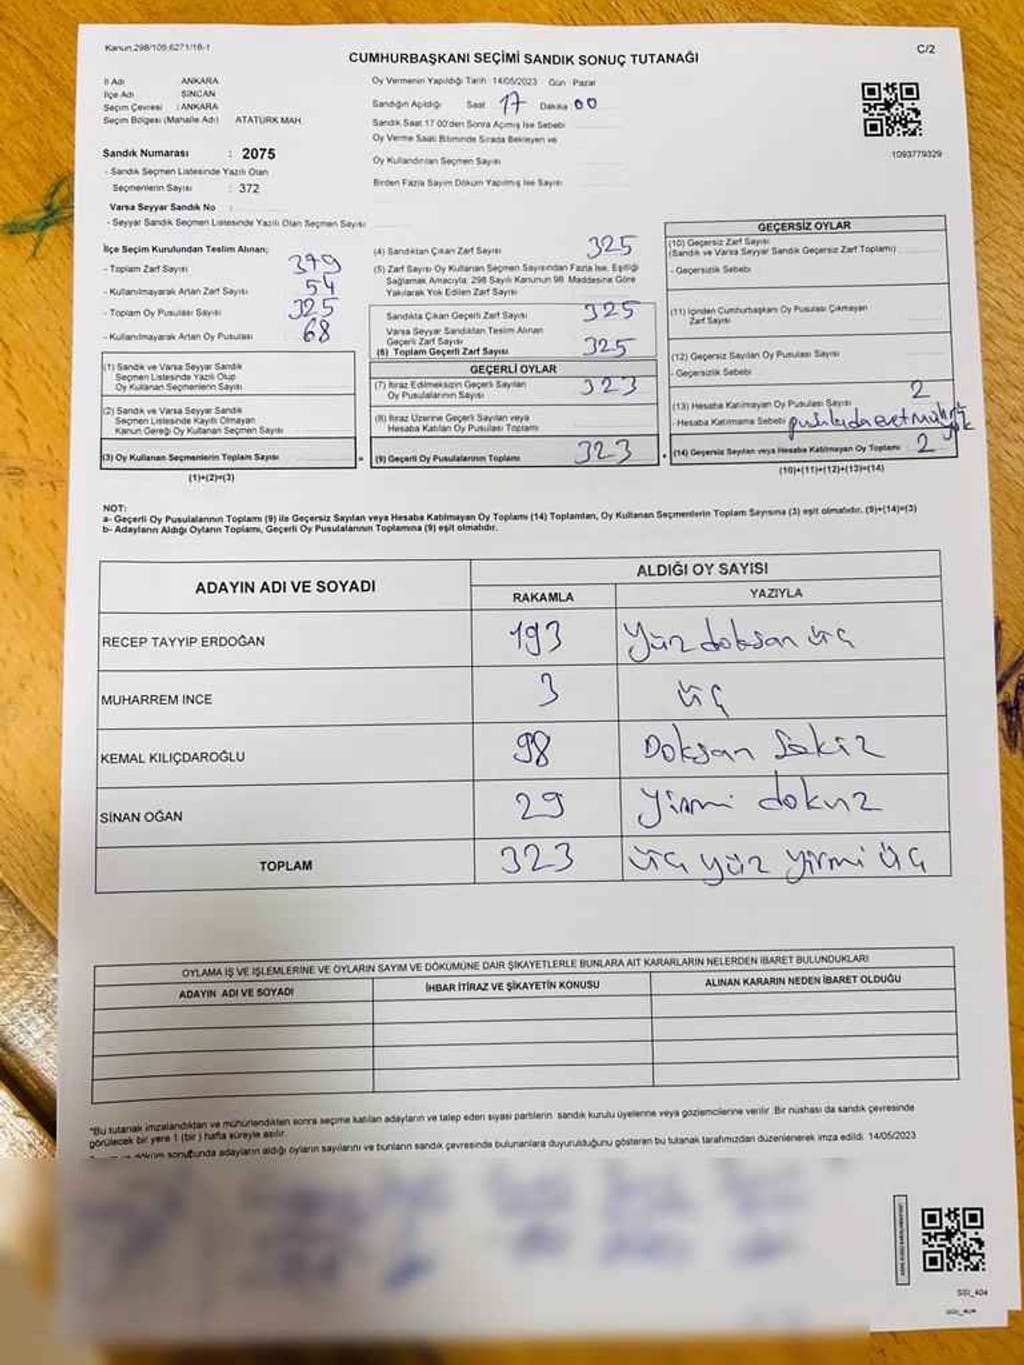 Kanun.298/109.6271/16-1
C/2
CUMHURBAŞKANI SEÇİMİ SANDIK SONUÇ TUTANAĞI
İl Adı ANKARA
İlçe Adı SİNCAN
Seçim Çevresi : ANKARA
Seçim Bölgesi (Mahalle Adı) ATATÜRK MAH.
Sandık Numarası : 2075
- Sandık Seçmen Listesinde Yazılı Olan
Seçmenlerin Sayısı : 372
Varsa Seyyar Sandık No :
- Seyyar Sandık Seçmen Listesinde Yazılı Olan Seçmen Sayısı
Oy Vermenin Yapıldığı Tarih : 14/05/2023 Gün : Pazar
Sandığın Açıldığı Saat 17 Dakika 00
Sandık Saat 17 00'den Sonra Açılmış İse Sebebi
Oy Verme Saati Bitiminde Sırada Bekleyen ve
Oy Kullandırılan Seçmen Sayısı
Birden Fazla Sayım Döküm Yapılmış İse Sayısı
1093779329
İlçe Seçim Kurulundan Teslim Alınan;
- Toplam Zarf Sayısı 379
- Kullanılmayarak Artan Zarf Sayısı 54
- Toplam Oy Pusulası Sayısı 325
- Kullanılmayarak Artan Oy Pusulası 68
(1) Sandık ve Varsa Seyyar Sandık
Seçmen Listesinde Yazılı Olup
Oy Kullanan Seçmenlerin Sayısı
(2) Sandık ve Varsa Seyyar Sandık
Seçmen Listesinde Kayıtlı Olmayan
Kanun Gereği Oy Kullanan Seçmen Sayısı
(3) Oy Kullanan Seçmenlerin Toplam Sayısı =
(1)+(2)=(3)
(4) Sandıktan Çıkan Zarf Sayısı 325
(5) Zarf Sayısı Oy Kullanan Seçmen Sayısından Fazla İse, Eşitliği
Sağlamak Amacıyla; 298 Sayılı Kanunun 98. Maddesine Göre
Yakılarak Yok Edilen Zarf Sayısı
Sandıkta Çıkan Geçerli Zarf Sayısı 325
Varsa Seyyar Sandıktan Teslim Alınan
Geçerli Zarf Sayısı
(6) Toplam Geçerli Zarf Sayısı 325
GEÇERLİ OYLAR
(7) İtiraz Edilmeksizin Geçerli Sayılan
Oy Pusulalarının Sayısı 323
(8) İtiraz Üzerine Geçerli Sayılan veya
Hesaba Katılan Oy Pusulası Toplamı
(9) Geçerli Oy Pusulalarının Toplamı 323
GEÇERSİZ OYLAR
(10) Geçersiz Zarf Sayısı
(Sandık ve Varsa Seyyar Sandık Geçersiz Zarf Toplamı)
- Geçersizlik Sebebi
(11) İçinden Cumhurbaşkanı Oy Pusulası Çıkmayan
Zarf Sayısı
(12) Geçersiz Sayılan Oy Pusulası Sayısı
- Geçersizlik Sebebi
(13) Hesaba Katılmayan Oy Pusulası Sayısı 2
- Hesaba Katılmama Sebebi pusulada evet mührü yok
(14) Geçersiz Sayılan veya Hesaba Katılmayan Oy Toplamı 2
(10)+(11)+(12)+(13)=(14)
NOT:
a- Geçerli Oy Pusulalarının Toplamı (9) ile Geçersiz Sayılan veya Hesaba Katılmayan Oy Toplamı (14) Toplamları, Oy Kullanan Seçmenlerin Toplam Sayısına (3) eşit olmalıdır. (9)+(14)=(3)
b- Adayların Aldığı Oyların Toplamı, Geçerli Oy Pusulalarının Toplamına (9) eşit olmalıdır.
ADAYIN ADI VE SOYADI ALDIĞI OY SAYISI
RAKAMLA YAZIYLA
RECEP TAYYİP ERDOĞAN 193 Yüz doksan üç
MUHARREM İNCE 3 üç
KEMAL KILIÇDAROĞLU 98 Doksan Sekiz
SİNAN OĞAN 29 Yirmi dokuz
TOPLAM 323 üç yüz yirmi üç
OYLAMA İŞ VE İŞLEMLERİNE VE OYLARIN SAYIM VE DÖKÜMÜNE DAİR ŞİKAYETLERLE BUNLARA AİT KARARLARIN NELERDEN İBARET BULUNDUKLARI
ADAYIN ADI VE SOYADI İHBAR İTİRAZ VE ŞİKAYETİN KONUSU ALINAN KARARIN NEDEN İBARET OLDUĞU
*Bu tutanak imzalandıktan ve mühürlendikten sonra seçime katılan adayların ve talep eden siyasi partilerin sandık kurulu üyelerine veya gözlemcilerine verilir. Bir nüshası da sandık çevresinde
görülecek bir yere 1 (bir) hafta süreyle asılır.
döküm sonucunda adayların aldığı oyların sayılarını ve bunların sandık çevresinde bulunanlara duyurulduğunu gösteren bu tutanak tarafımızdan düzenlenerek imza edildi. 14/05/2023
SSI_404
SSI_404